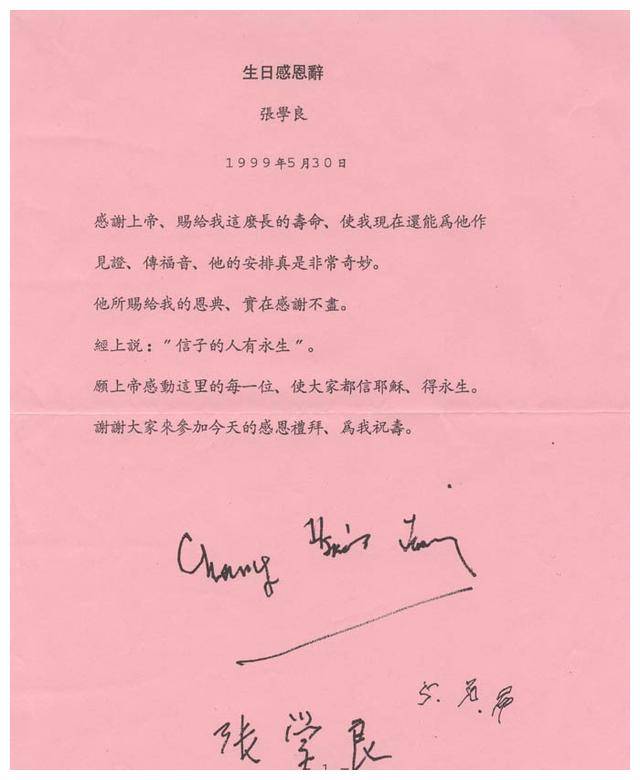 生日感恩辭
張學良
1999年5月30日
感謝上帝、賜給我這麼長的壽命、使我現在還能爲他作
見證、傳福音、他的安排真是非常奇妙。
他所賜給我的恩典、實在感謝不盡。
經上説：″信子的人有永生″。
願上帝感動這里的每一位、使大家都信耶穌、得永生。
謝謝大家來參加今天的感恩禮拜、爲我祝壽。
Chang
張學良